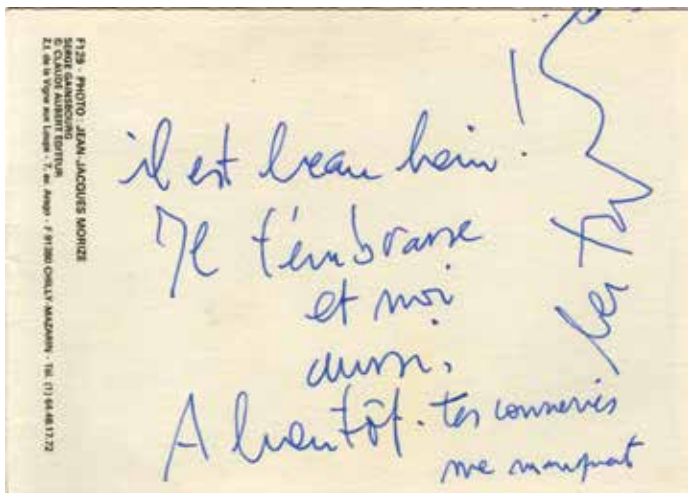 F129 - PHOTO : JEAN-JACQUES MORIZE
SERGE GAINSBOURG
© CLAUDE AUBERT EDITEUR
Z.I. de la Vigne aux Loups - 7, av. Arago - F 91380 CHILLY-MAZARIN - Tél. (1) 64.48.17.72
il est beau hein !
Il t'embrasse
et moi
aussi.
A bientôt. tes conneries
me manquent